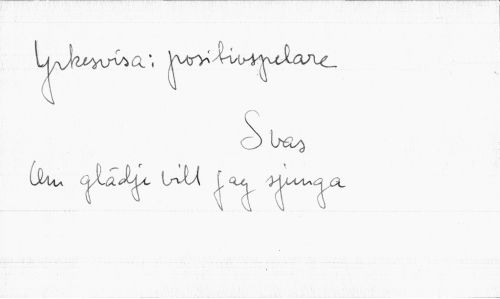 Yrkesvisa: positivspelare
Svas
Om glädje vill jag sjunga